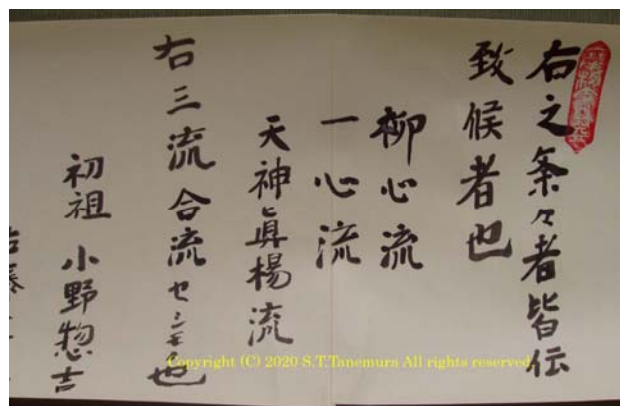 右之条々者皆伝
致候者也
柳心流
一心流
天神眞楊流
右三流合流セシモ也
初祖 小野惣吉
Copyright (C) 2020 S.T.Tanemura All rights reserved